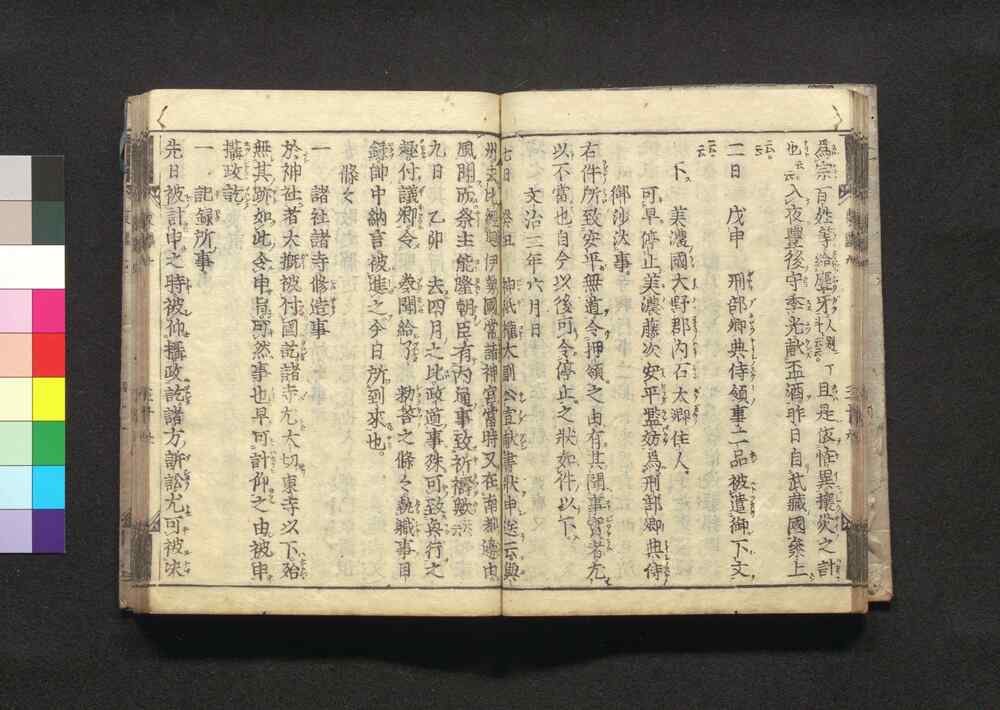 為宗百姓等給麞牙八斛云云且是依恠異攘災之計
也云云入夜豐後守季光献盃酒昨日自武藏國叅上
云云
二日　戊申　刑部卿典侍領事二品被遣御下文
云云
下　美濃國大野郡內石太郷住人
可早停止美濃藤次安平監妨為刑部卿典侍
御沙汰事
右件所致安平無道令押領之由有其聞事實者尤
以不當也自今以後可令停止之狀如件以下
文治三年六月日
七日　癸丑　神祇權大副公宣献書狀申送云與
州去比經迴伊勢國常詣神宮當時又在南都邊由
風聞所祭主能隆朝臣有內通事致祈禱歟云云
九日　乙卯　去四月之比政道事殊可致興行之
趣付議奏卿令奏聞給了勅荅之條々執職事目
錄帥中納言被進之今日所到來也
條々
一　諸社諸寺修造事
於神社者大概被付國訖諸寺尤大切東寺以下殆
無其跡如此令申旨可然事也早可計仰之由被申
攝政訖
一　記録所事
先日被計申之時被仰攝政訖諸方訴訟尤可被决